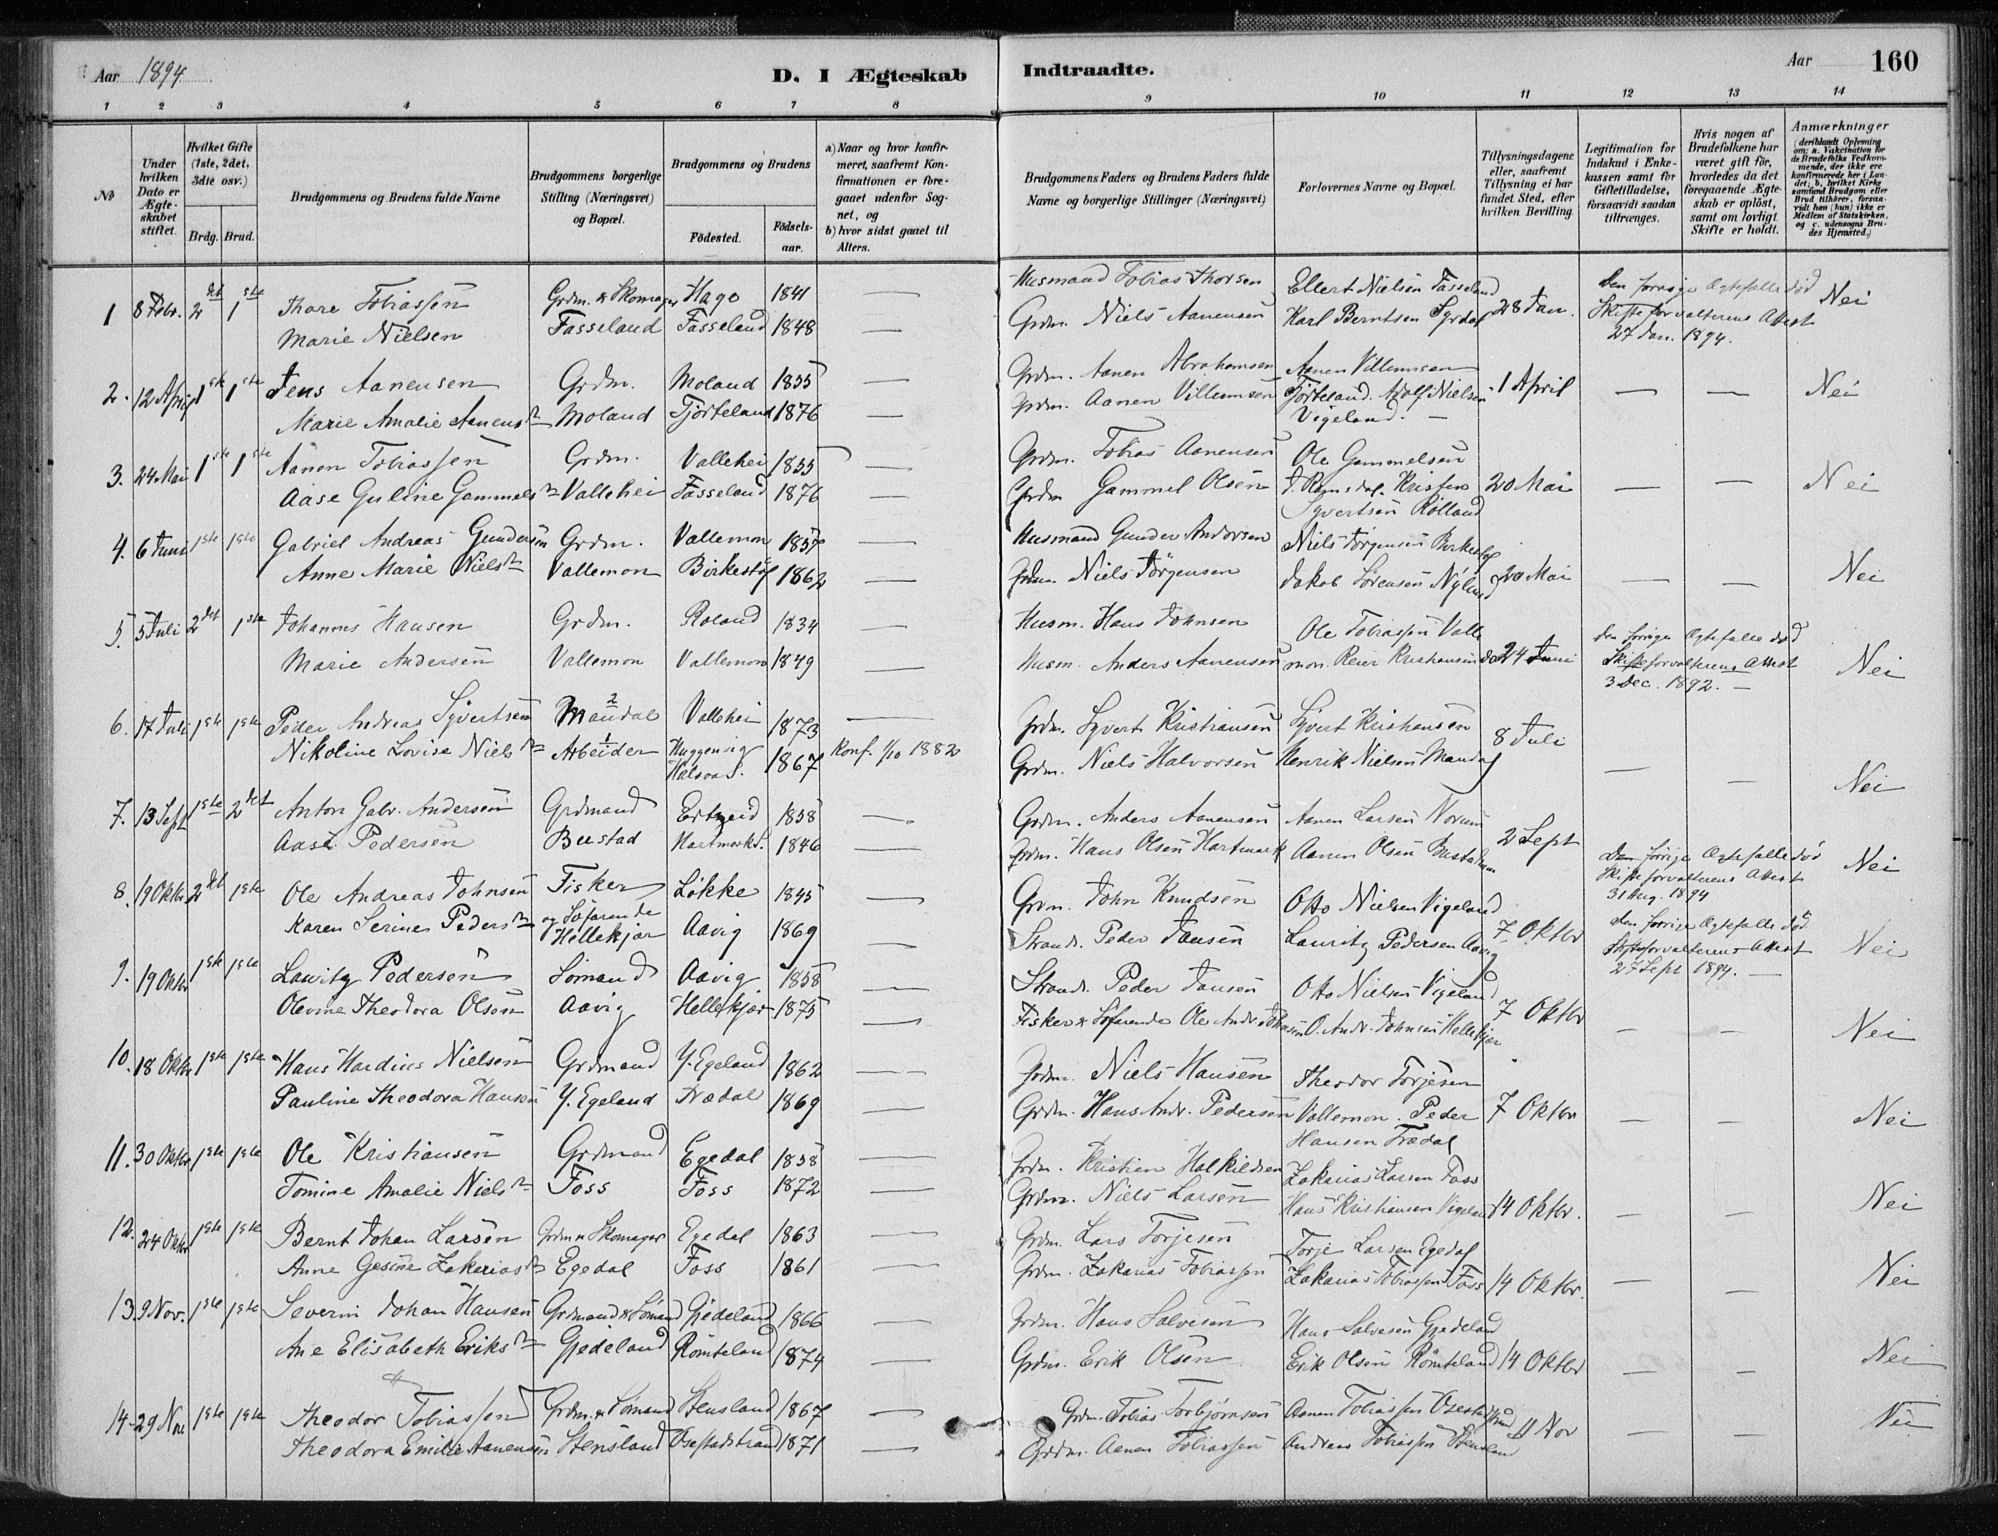 Aar 1894
D. I Ægteskab
Indtraadte.
Aar
160
1 2 3 4 5 6 7 8 9 10 11 12 13 14
No
Under hvilken Dato er Ægteskabet stiftet.
Hvilket Gifte (1ste, 2det, 3die osv.)
Brdg. Brud.
Brudgommens og Brudens fulde Navne
Brudgommens borgerlige Stilling (Næringsvei) og Bopæl.
Brudgommens og Brudens
Fødested.
Fødselsaar.
a) Naar og hvor konfirmeret, saafremt Konfirmationen er foregaaet udenfor Sognet, og
b) hvor sidst gaaet til Alters.
Brudgommens Faders og Brudens Faders fulde Navne og borgerlige Stillinger (Næringsvei)
Forlovernes Navne og Bopæl.
Tillysningsdagene eller, saafremt Tillysning ei har fundet Sted, efter hvilken Bevilling.
Legitimation for Indskud i Enkekassen samt for Giftetilladelse, forsaavidt saadan tiltrænges.
Hvis nogen af Brudefolkene har været gift før, hvorledes da det foregaaende Ægteskab er opløst, samt om lovligt Skifte er holdt.
Anmærkninger (deriblandt Oplysning om: a. Vakcination for de Brudefolks Vedkommende, der ikke ere konfirmerede her i Landet; b. hvilket Kirkesamfund Brudgom eller Brud tilhører, forsaavidt han (hun) ikke er Medlem af Statskirken, og c. udensogns Brudes Hjemsted.)
1 8 Febr. 2det 1ste Thore Tobiassen Grdm. & Skomager Hage 1841 — Husmand Tobias Thorsen Ellert Nielsen Fasseland 28 Jan. Den forrige Ægtefælle død Nei
Marie Nielsen Fasseland Fasseland 1848 — Grdm. Niels Aanensen Karl Berntsen Syrdal Skifteforvalterens Attest
27 Jan. 1894.
2. 12 April 1ste 1ste Jens Aanensen Grdm. Moland 1855 — Grdm. Aanen Abrahamsen Aanen Villumsen 1 April — — Nei
Marie Amalie Aanensdr Moland Tjørteland 1876 — Grdm. Aanen Villumsen Tjørteland. Adolf Nielsen
Vigeland. —
3. 24 Mai 1ste 1ste Aanen Tobiassen Grdm. Vallehei 1855 — Grdm. Tobias Aanensen Ole Gammelsen 20 Mai — — Nei
Aase Guline Gammelsdr Vallehei Fasseland 1876 — Grdm Gammel Olsen Ramsdal. Kristen
Syvertsen Rölland
4. 6 Juni 1ste 1ste Gabriel Andreas Gundersen Grdm. Vallemon 1857 — Husmand Gunder Andersen Niels Jørgensen Birkestøl 20 Mai — — Nei
Anne Marie Nielsdr Vallemon Birkestøl 1862 — Grdm Niels Jörgensen Jakob Sørensen Nÿlund
5. 5 Juli 2det 1ste Johannes Hansen Grdm. Roland 1834 — Husm. Hans Johnsen Ole Tobiassen Valle 24 Juni Den forrige Ægtefælle død Nei
Marie Andersen Vallemon Vallemon 1849 — Husm. Anders Aanensen mon. Reier Kristiansen do Skifteforvalterens Attest
3 Dec. 1892. —
6. 17 Juli 1ste 1ste Peder Andreas Syvertsen 2 Mandal Vallehei 1873 — Grdm. Syvert Kristiansen Syvert Kristiansen 8 Juli — — Nei
Nikoline Lovise Nielsdr 1 Arbeider Huggenvig Halsaa S. 1867 Konf. 1/10 1882 Grdm. Niels Halvorsen Henrik Nielsen Mandal
7. 13 Sept 1ste 2det Anton Gabr. Andersen Grdmand Ertzeid 1858 — Grdm. Anders Aanensen Aanen Larsen Norum 2 Sept Den forrige Ægtefælle død Nei
Aase Pedersen Bustad Hartmark S. 1846 — Grdm. Hans Olsen Hartmark Aanen Olsen Skifteforvalterens Attest
31 Aug. 1894
8. 19 Oktbr 2det 1ste Ole Andreas Johnsen Fisker Løkke 1845 — Grdm. John Knudsen Otto Nielsen Vigeland 7 Oktbr Den forrige Ægtefælle død Nei
Karen Serine Pedersdr og Søfarende Hellekjær Aavig 1869 — Strands. Peder Jansen Lauritz Pedersen Aavig Skifteforvalterens Attest
27 Sept 1894. —
9. 19 Oktbr 1ste 1ste Lauritz Pedersen Sømand Aavig 1858 — Strands. Peder Jansen Otto Nielsen Vigeland 7 Oktbr — — Nei
Olevine Theodora Olsen Aavig Hellekjær 1875 — Fisker & Søfarende Ole Andr. Johnsen O. Andr. Johnsen Hellekjær
10. 18 Oktbr 1ste 1ste Hans Hardius Nielsen Grdmand Y. Egeland 1862 — Grdm. Niels Hansen Theodor Torjesen 7 Oktbr — — Nei
Pauline Theodora Hansen Y. Egeland Trædal 1869 — Grdm. Hans Andr. Pedersen Vallemon. Peder
Hansen Trædal
11. 30 Oktbr 1ste 1ste Ole Kristiansen Grdmand Egedal 1858 — Grdm. Kristien Halkildsen Zakarias Larsen Foss 14 Oktbr. — — Nei
Tomine Amalie Nielsdr Foss Foss 1872 — Grdm. Niels Larsen Hans Kristiansen Vigeland
12. 24 Oktbr 1ste 1ste Bernt Johan Larsen Grdm & Skomager Egedal 1863 — Grdm. Lars Torjesen Torje Larsen Egedal 14 Oktbr. — — Nei
Anne Gesine Zakariasdr Egedal Foss 1861 — Grdm. Zakarias Tobiassen Zakarias Tobiassen Foss
13. 9 Nov. 1ste 1ste Severin Johan Hansen Grdmand & Sömand Gjedeland 1866 — Grdm. Hans Salvesen Hans Salvesen Gjedeland 14 Oktbr — — Nei
Ane Elisabeth Eriksdr Gjedeland Römteland 1874 — Grdm. Erik Olsen Erik Olsen Römteland
14. 29 Nov 1ste 1ste Theodor Tobiassen Grdm. & Sömand Stensland 1867 — Grdm. Tobias Torbjørnsen Aanen Tobiassen Osestadstrand 11 Nov — — Nei
Theodora Emilie Aanensen Stensland Osestadstrand 1871 — Grdm. Aanen Tobiassen Andreas Tobiassen Stensland